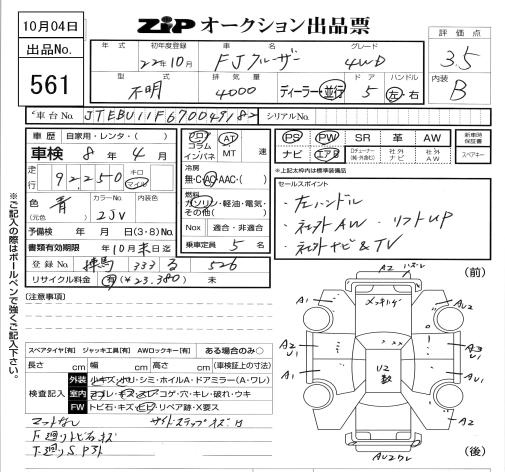 10月04日
出品No.
561
ZIPオークション出品票
年式 初年度登録 車名 グレード
22年10月 FJクルーザー 4WD
型式 排気量 ドア ハンドル
不明 4000 ディーラー・並行 5 左・右
評価点
3.5
内装
B
車台No. JTEBU11F670049182 シリアルNo.
車歴 自家用・レンタ・( )
車検 8年 4月
走行 92,250 キロ マイル
色 青 カラーNo. 内装色
(元色) 2JV
予備検 年 月 日(3・8)No.
書類有効期限 年10月末日迄
登録No. 練馬 333 る 526
リサイクル料金 有(¥23,380) 未
フロア コラム インパネ AT MT 速
冷房
無・C・AC・AAC・( )
燃料
ガソリン・軽油・電気・その他( )
Nox 適合・非適合
乗車定員 5 名
PS PW SR 革 AW
ナビ エアB Dチューナー(純・外含む) 社外ナビ 社外AW
新車時保証書
スペアキー
※上記太枠内は標準装備品
セールスポイント
・左ハンドル
・社外AW・リフトUP
・社外ナビ&TV
※ご記入の際はボールペンで強くご記入下さい。
[注意事項]
スペアタイヤ[有] ジャッキ工具[有] AWロックキー[有] ある場合のみ○
長さ cm 幅 cm 高さ cm (車検証上の寸法)
検査記入
外装 小キズ・小凹・シミ・ホイルA・ドアミラー(A・ワレ)
室内 ヨゴレ・キズ・スレ・コゲ・穴・キレ・破れ・ウキ
FW トビ石・キズ・ヒビ・リペア跡・X要ス
マットなし サイドステップキズ凹
F廻りトビ石キズ
下廻りS
(前)
A2
A1 メッキハゲ AU2
A2 U1 A3 U1
A1 U2 数 A1
AU2ワレ
(後)